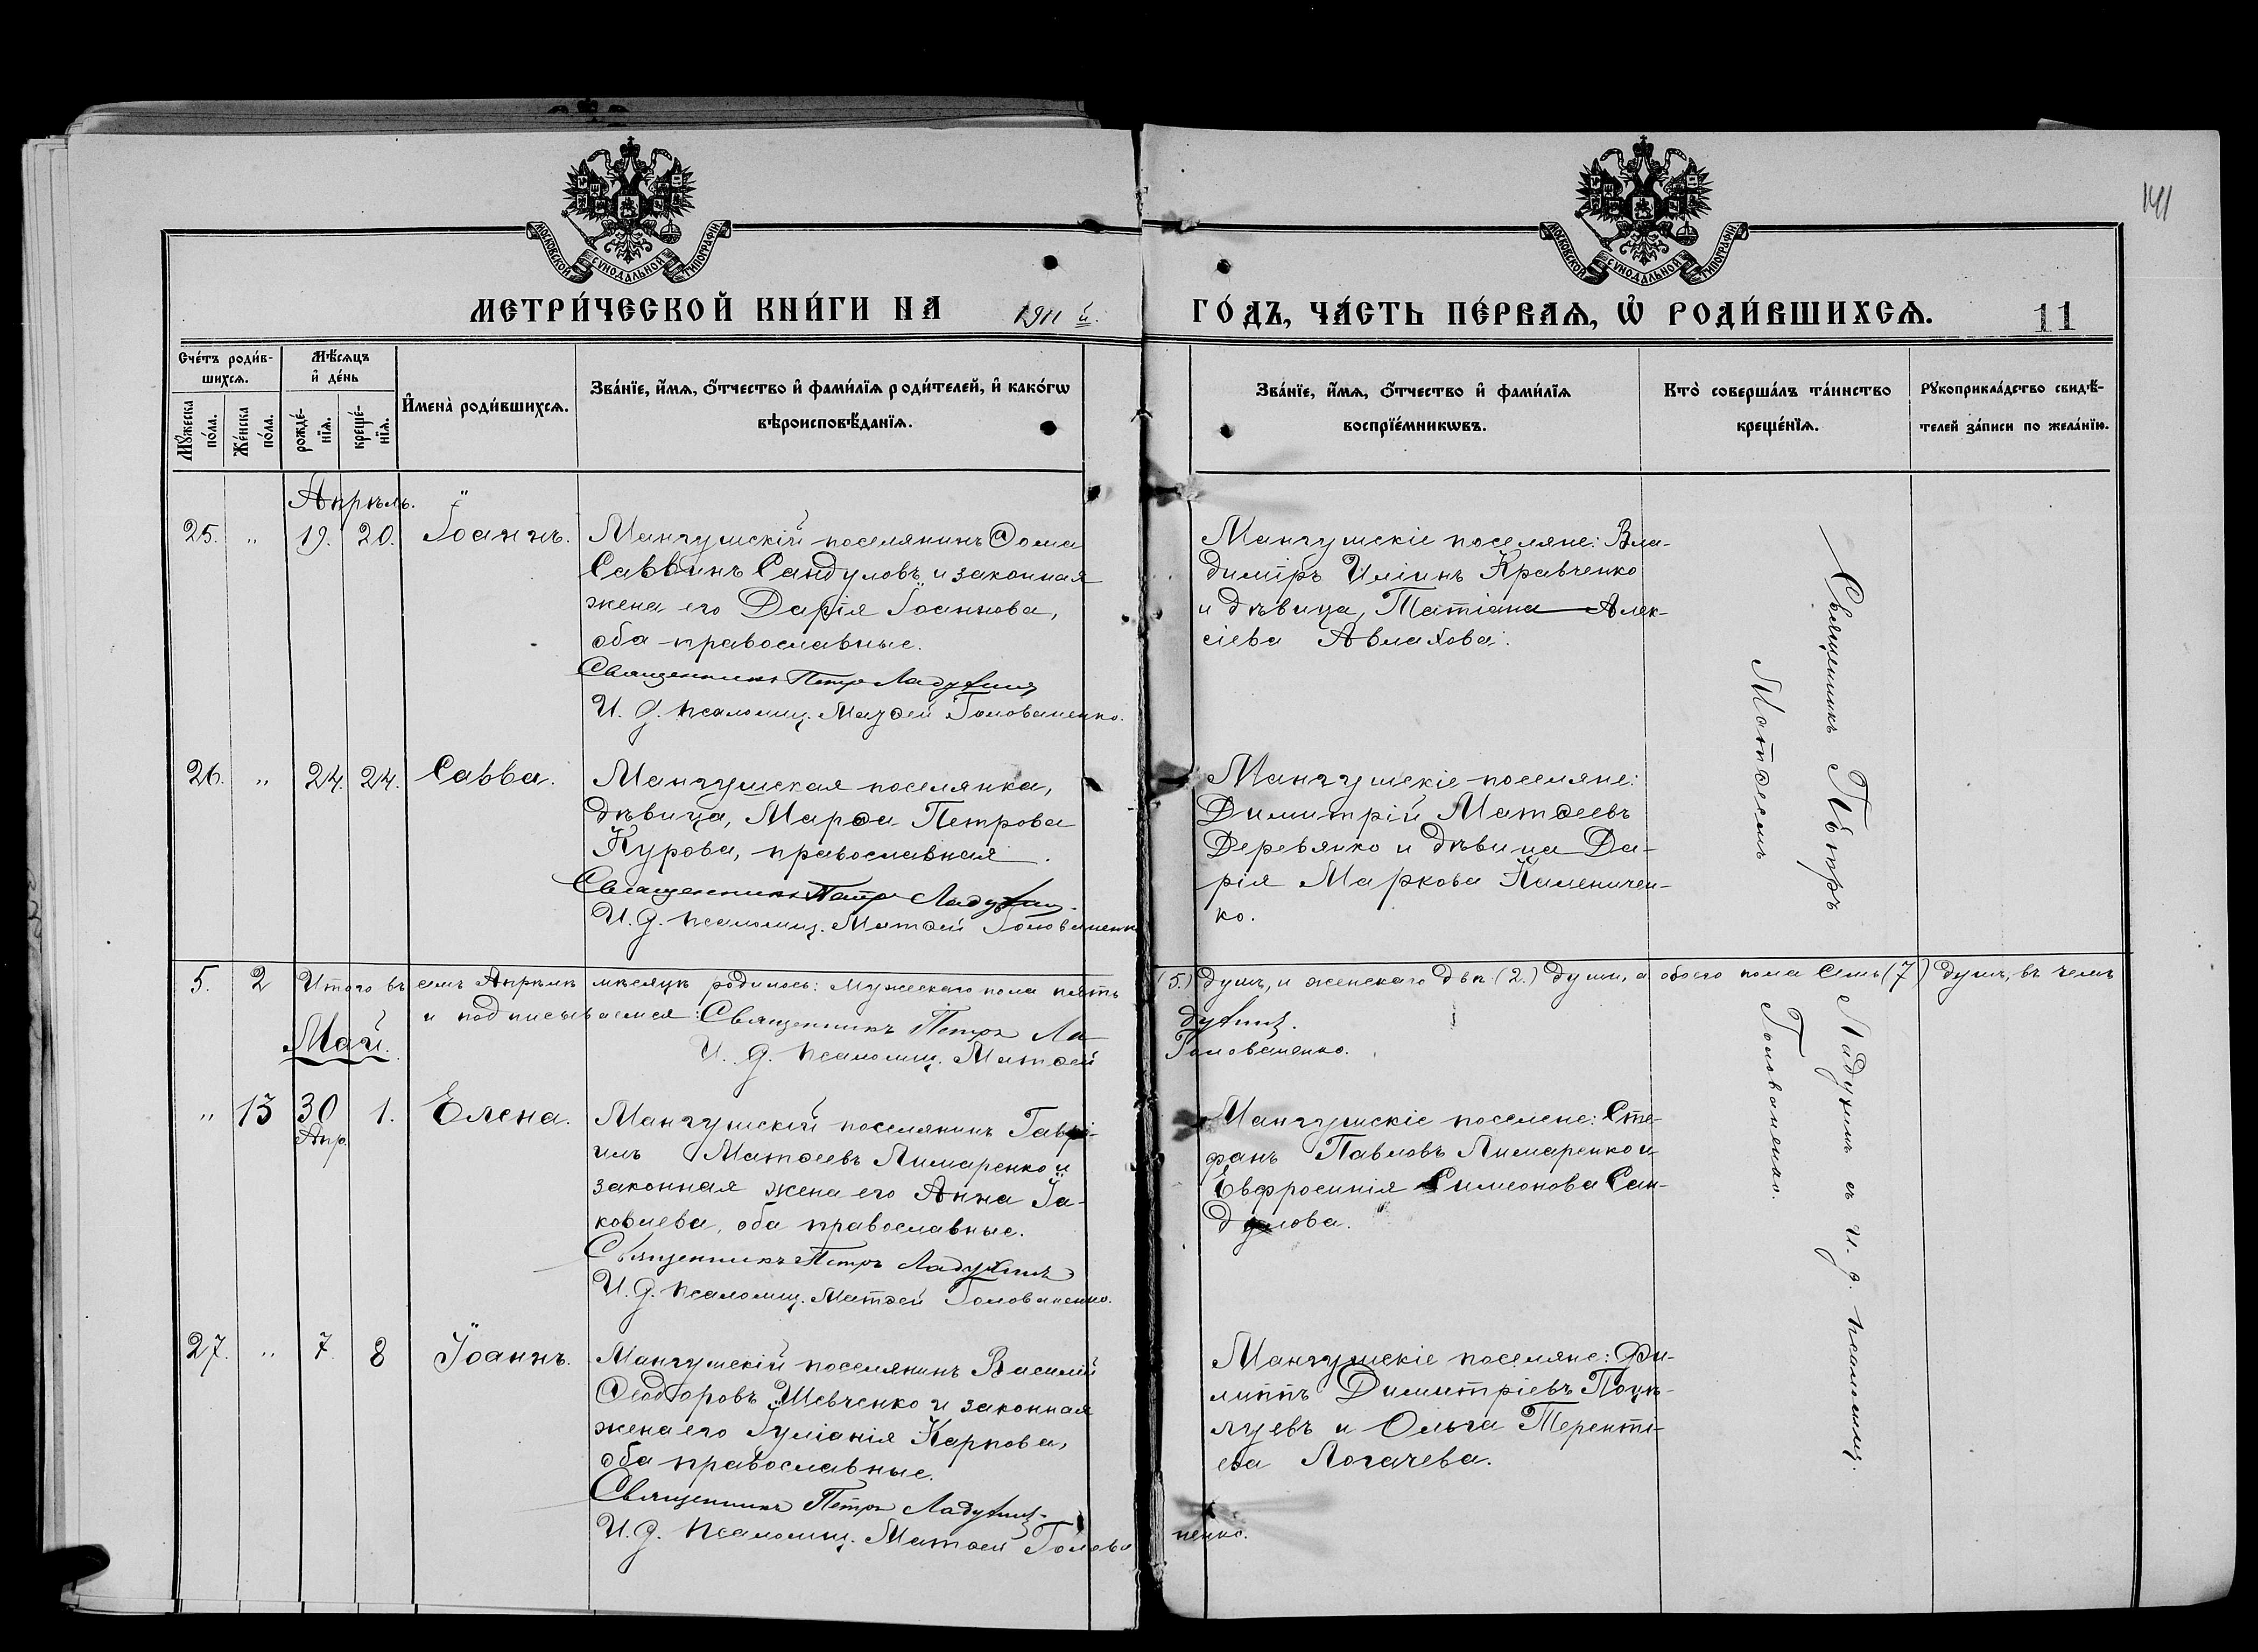 МОСКОВСКОЙ СѴНОДАЛЬНОЙ ТИПОГРАФІИ
МОСКОВСКОЙ СѴНОДАЛЬНОЙ ТИПОГРАФІИ
141
МЕТРИ́ЧЕСКОЙ КНИ́ГИ НА 1911 й. ГО́ДЪ, ЧА́СТЬ ПЕ́РВАѦ, Ѡ҆ РОДИ́ВШИХСѦ. 11
Сче́тъ роди́в-
шихсѧ.
Мꙋ́жеска по́ла.
Же́нска по́ла.
Мѣ́сѧцъ
и҆ де́нь
рожде́-
нїѧ.
креще́-
нїѧ.
И҆мена̀ роди́вшихсѧ.
Зва́нїе, и҆́мѧ, ѻ҆́тчество и҆ фами́лїѧ роди́телей, и҆ како́гѡ
вѣроисповѣ́данїѧ.
Зва́нїе, и҆́мѧ, ѻ҆́тчество и҆ фами́лїѧ
воспрїе́мникѡвъ.
Кто̀ соверша́лъ та́инство
креще́нїѧ.
Рꙋкоприкла́дство свидѣ́-
телей за́писи по жела́нїю.
Апрѣль.
25. " 19. 20. Іоаннъ.
Мангушскій поселянинъ Ѳома
Саввинъ Сандуловъ и законная
жена его Дарія Іоаннова,
оба православные.
Священникъ Петръ Ладухинъ
И. д. псаломщ. Матѳей Голованенко.
Мангушскіе поселяне: Вла-
диміръ Иліинъ Кравченко
и дѣвица, Татіана Алек-
сіева Авлахова.
26. " 24. 24. Савва.
Мангушская поселянка,
дѣвица, Марѳа Петрова
Курова, православная.
Священникъ Петръ Ладухинъ
И. д. псаломщ. Матѳей Голованенко
Мангушскіе поселяне:
Димитрій Матѳеевъ
Деревянко и дѣвица Да-
рія Маркова Каменичен-
ко.
5. 2 Итого въ семъ Апрѣлѣ мѣсяцѣ родилось: мужескаго пола пять (5.) душъ, и женскаго двѣ (2.) души, а обоего пола семь (7) душъ, въ чемъ
и подписываемся: Священникъ Петръ Ладухинъ.
И. д. псаломщ. Матѳей Голованенко.
Май.
" 13 30 Апр. 1. Елена.
Мангушскій поселянинъ Гаврі-
илъ Матѳеевъ Лимаренко и
законная жена его Анна Іа-
ковлева, оба православные.
Священникъ Петръ Ладухинъ
И. д. псаломщ. Матѳей Голованенко.
Мангушскіе поселене: Сте-
фанъ Павловъ Лимаренко и
Евфросинія Симеонова Сан-
дулова.
27. " 7. 8 Іоаннъ.
Мангушскій поселянинъ Василій
Ѳеодоровъ Шевченко и законная
жена его Іуліанія Карпова,
оба православные.
Священникъ Петръ Ладухинъ
И. д. псаломщ. Матѳей Голованенко.
Мангушскіе поселяне: Фи-
липпъ Димитріевъ Поцѣ-
луевъ и Ольга Теренті-
ева Логачева.
Священникъ Петръ Ладухинъ съ и. д. псаломщ.
Матѳеемъ Голованенко.